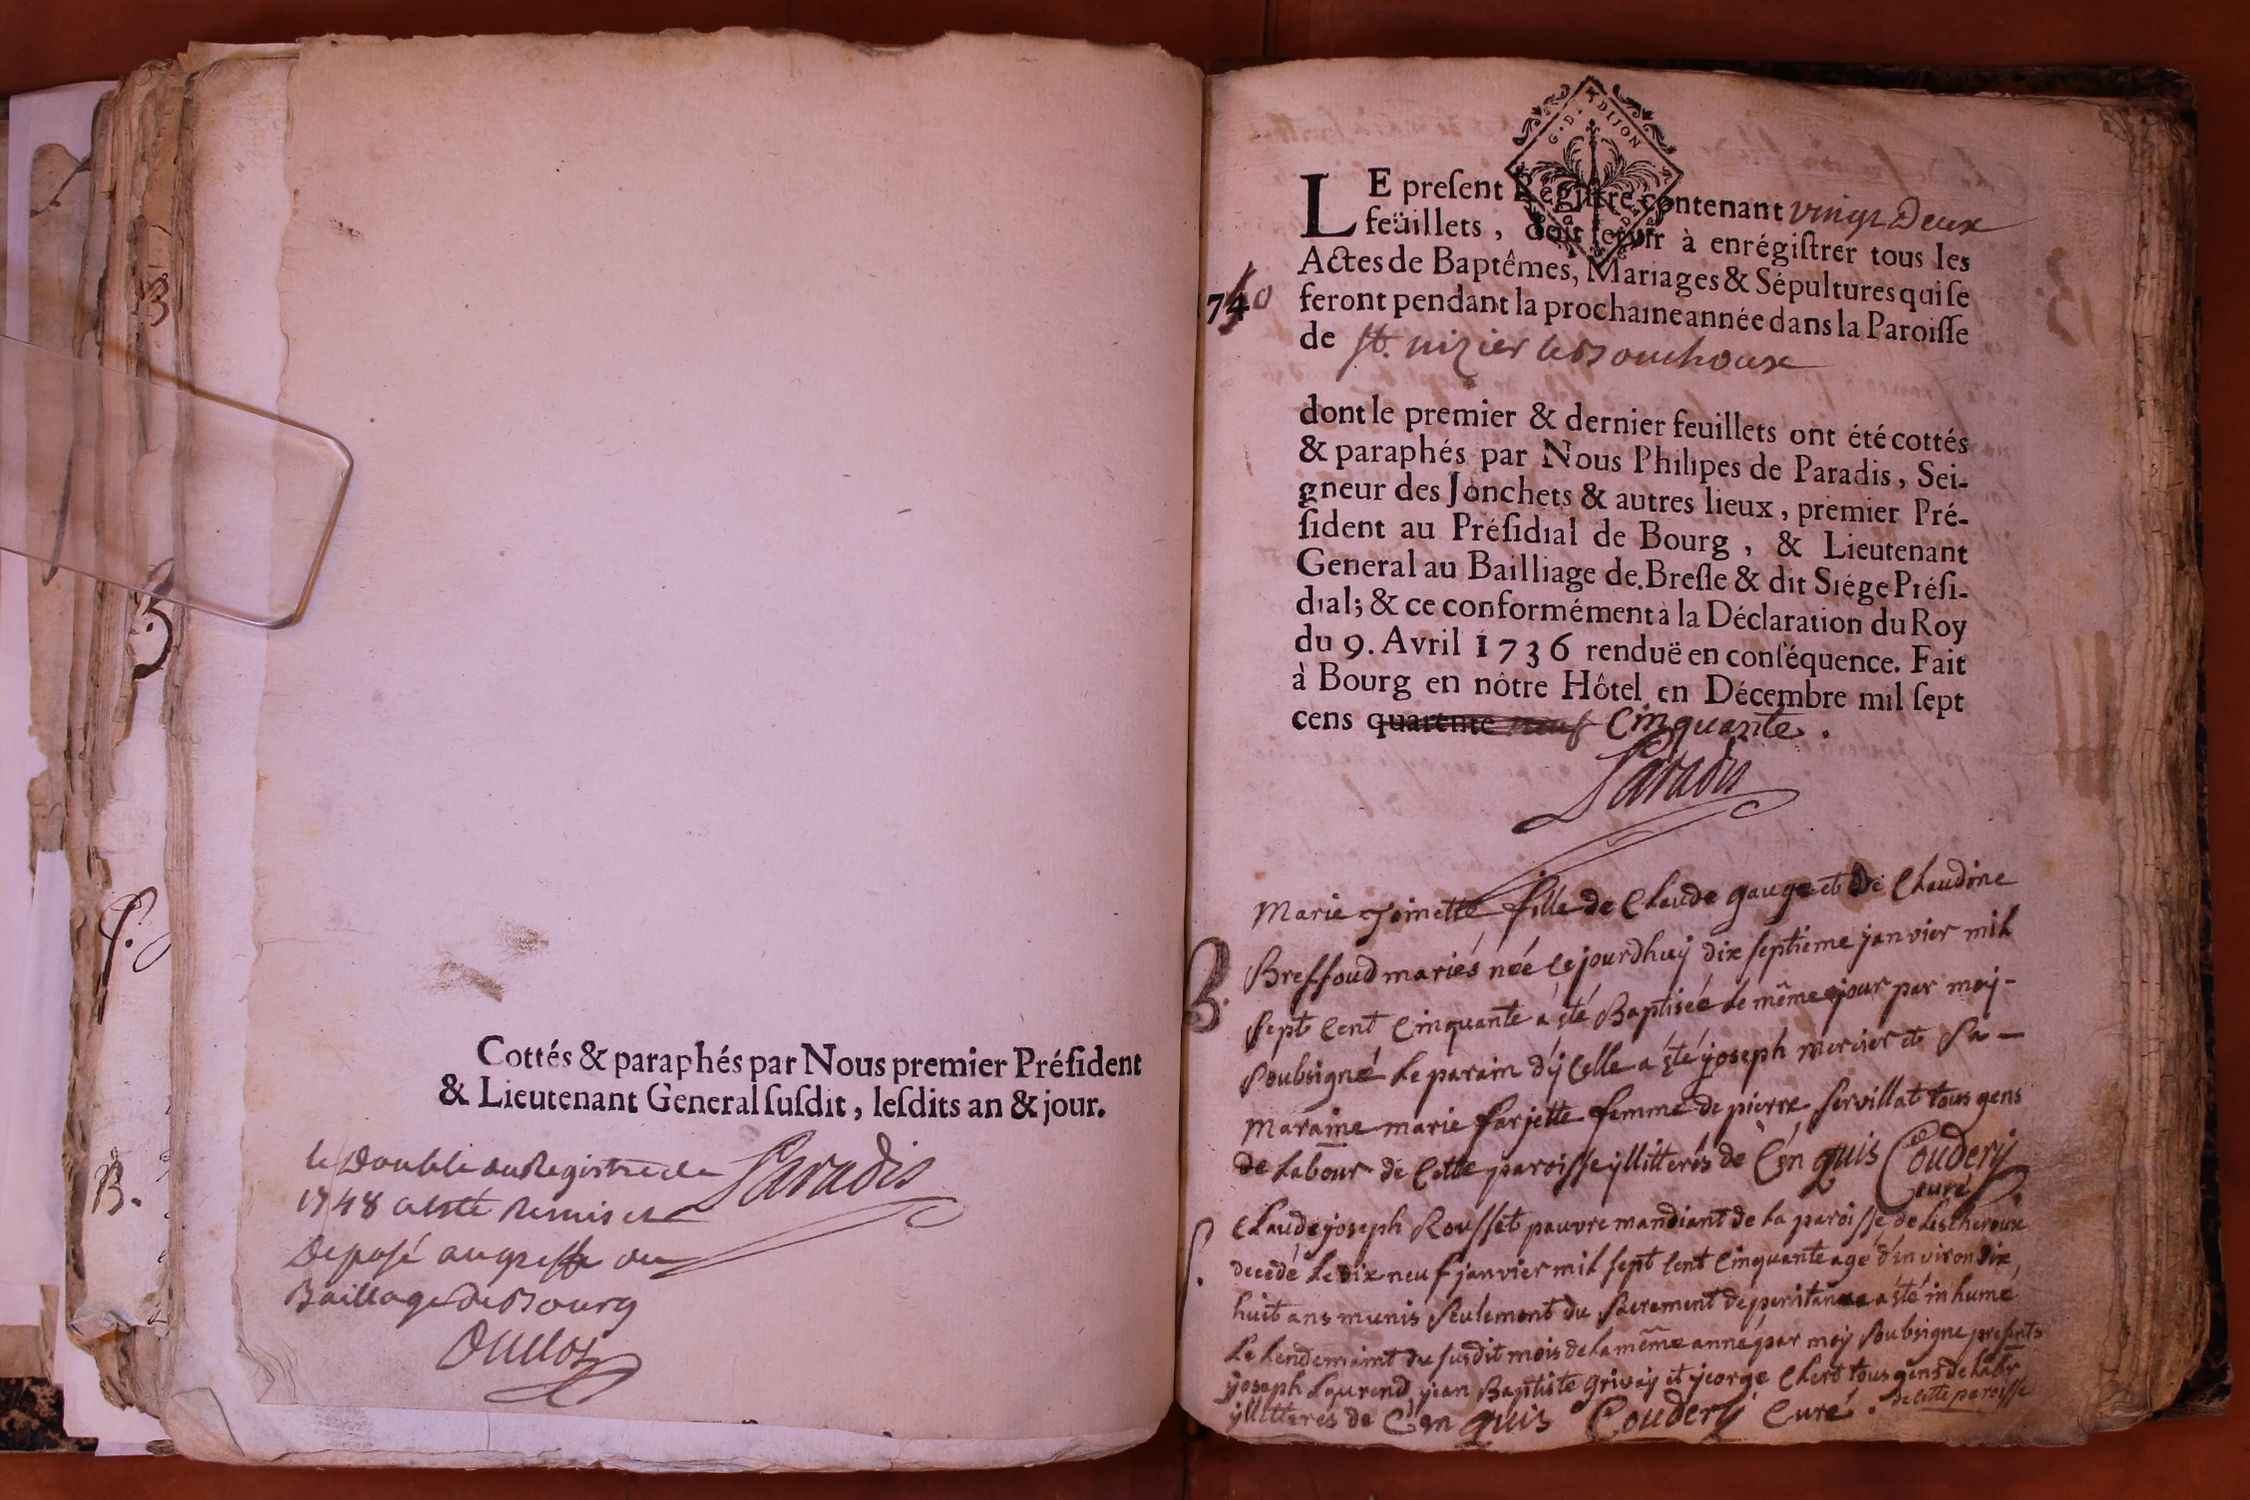 B
B.
S.
B.
Cottés & paraphés par Nous premier Préſident
& Lieutenant General ſuſdit, leſdits an & jour.
le Double du Registre de
1748 a esté Remis et
Deposé au greffe du
Baillage de Bourg
Paradis
G. D. DIJON
LE preſent Regiſtre contenant vingt Deux
feüillets, doit ſervir à enrégiſtrer tous les
Actes de Baptêmes, Mariages & Sépultures qui ſe
feront pendant la prochaine année dans la Paroiſſe
de st. nizier le Bouchoux
dont le premier & dernier feuillets ont été cottés
& paraphés par Nous Philipes de Paradis, Sei-
gneur des Jonchets & autres lieux, premier Pré-
ſident au Préſidial de Bourg, & Lieutenant
General au Bailliage de Breſſe & dit Siége Préſi-
dial; & ce conformément à la Déclaration du Roy
du 9. Avril 1736 renduë en conſéquence. Fait
à Bourg en nôtre Hôtel en Décembre mil ſept
cens quarente neuf Cinquante.
Paradis
B.
Marie Joinette fille de Claude gauge et de Claudine
Breffoud mariés née cejourdhuy dix septieme janvier mil
sept cent cinquante a été Baptisée le même jour par moy
soubsigné le parain d'ycelle a été joseph mercier et sa
maraine marie farjette femme de pierre servillat tous gens
de labour de cette paroisse yllitterés de ce enquis Coudery
Curé
S.
Claude joseph Rousset pauvre mandiant de la paroisse de lescheroux
decedé le dix neuf janvier mil sept cent cinquante agé d'environ dix
huit ans munis seulement du sacrement de penitance a été inhumé
le lendemaint du susdit mois de la même année par moy soubsigne presents
joseph Laurend jean Baptiste grivay et george Clerc tous gens de labr
de cette paroisse
yllitterés de ce enquis Coudery Curé.